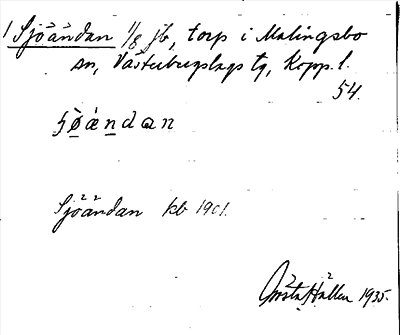 1 Sjöändan 1/8 jb, torp i Malingsbo
sn, Västerbergslags tg, Kopp. l.
54.
ʃø̀ándan
Sjöändan kb 1901.
Gösta Hallén 1935.